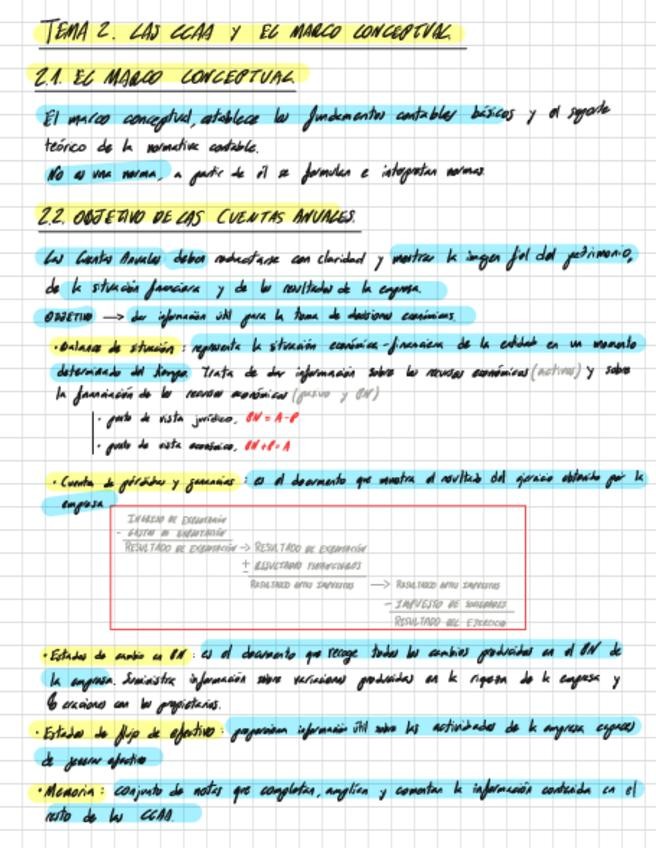 TEMA 2. LAS CCAA y EL MARCO CONCEPTUAL
2.1. EL MARCO CONCEPTUAL
El marco conceptual, establece los fundamentos contables básicos y el soporte
teórico de la normativa contable.
No es una norma, a partir de él se formulan e interpretan normas.
2.2. OBJETIVO DE LAS CUENTAS ANUALES.
Las Cuentas Anuales deben redactarse con claridad y mostrar la imagen fiel del patrimonio,
de la situación financiera y de los resultados de la empresa.
OBJETIVO → dar información útil para la toma de decisiones económicas.
· Balance de situación : representa la situación económica-financiera de la entidad en un momento
determinado del tiempo. Trata de dar información sobre los recursos económicos (activos) y sobre
la financiación de los recursos económicos (pasivo y PN)
· punto de vista jurídico, PN = A-P
· punto de vista económico, PN+P=A
· Cuenta de pérdidas y ganancias : es el documento que muestra el resultado del ejercicio obtenido por la
empresa
INGRESO DE EXPLOTACIÓN
- GASTOS DE EXPLOTACIÓN
RESULTADO DE EXPLOTACIÓN → RESULTADO DE EXPLOTACIÓN
± RESULTADO FINANCIEROS
RESULTADO ANTES IMPUESTOS → RESULTADO ANTES IMPUESTOS
- IMPUESTO DE SOCIEDADES
RESULTADO DEL EJERCICIO
· Estados de cambio en PN : es el documento que recoge todos los cambios producidos en el PN de
la empresa. Suministra información sobre variaciones producidas en la riqueza de la empresa y
con los propietarios.
· Estados de flujo de efectivo : proporciona información útil sobre las actividades de la empresa capaces
de generar efectivo
· Memoria : conjunto de notas que completan, amplían y comentan la información contenida en el
resto de las CCAA.